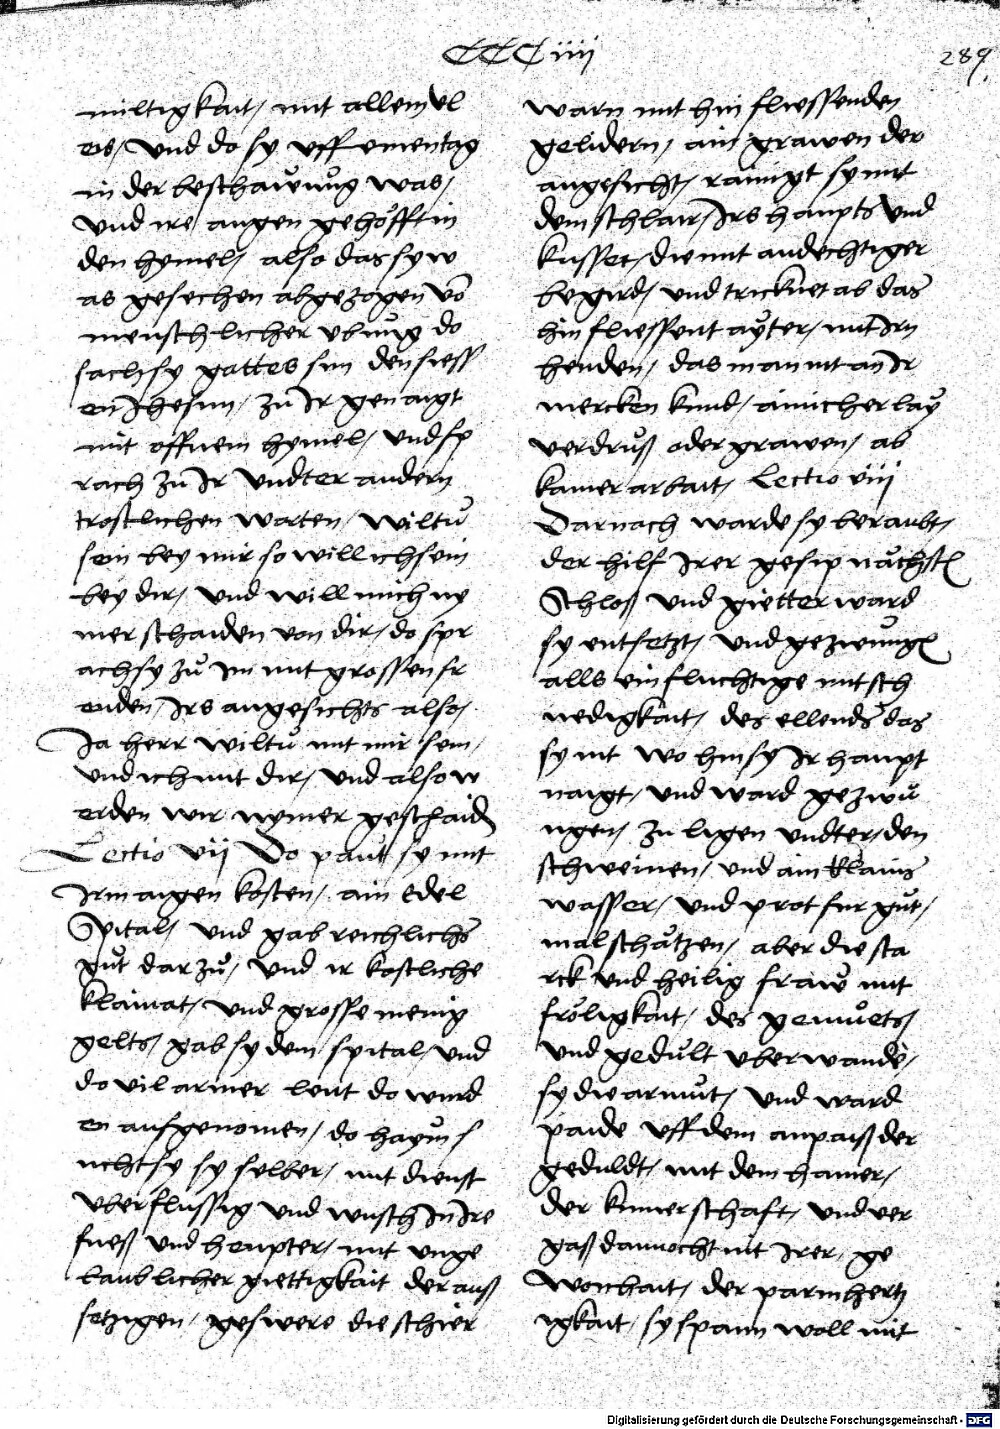 CCCiiij
289
miltigkait, mit allem vl
eis, Und do sy uff ainen tag
in der beschawu̇ng was,
Und ire augen gehöfft in
den hymel, also das sy w
as gesechen abgezogen vō
menschlicher ubu̇ng do
sach sy gottes sun den siess
en Jhesum, zu̇ Ir genaigt
mit offnem hymel, und sp
rach zu̇ Ir Undter andern
trostlichen worten, wiltu̇
sein bey mir so will ich sein
bey dir, Und will mich ny
mer schaiden von dir, do spr
ach sy zu̇ im mit grossen fr
euden, Irs angesichts also,
Ja herr wiltu̇ mit mir sein,
Und ich mit dir, Und also w
erden wir nymer geschaidē
Lectio vij Do paut sy mit
Irm aigen kosten, ain edel
Spital, Und gab reichlichs
gu̇t dar zu̇, Und ir kostliche
klainat, Und grosse menig
gelts, gab sy dem spital, Und
do vil armer leut do wurd
en aufgenomen, do haym s
ucht sy sy selber, mit dienst
uberflussig Und wusch In Ire
fuess Und heupter, mit unge
laublicher giettigkait der auss
setzigen, geswere die schier
warn mit hin fliessenden
gelidern, ain grawen der
angesicht, rainigt sy mit
dem schlair, Irs haupts Und
kusset, die mit andechtiger
begird, Und trücknet ab das
hin fliessent ayter, mit Irn
henden, das man nit an Ir
mercken kund, ainicherlay
verdru̇ß oder grawen, ab
kainer arbait, Lectio viij
Darnach warde sy beraubt,
der hilf Irer gesip nächstē
Schloß Und gietter ward
sy entsetzt, Und gezwu̇ngē
alls ein fluchtige mit sch
nedigkait, des ellends das
sy nit wo hin sy Ir haupt
naigt, Und ward gezwu̇
ngen, zu ligen Undter, den
schweinen, Und ain klains
wasser, Und prot fur gu̇t,
mal schätzen, aber die sta
rck Und heilig fraw mit
fröligkait, des gemu̇ets,
Und gedu̇lt uberwandē,
sy die armu̇t, Und ward
paide uff dem anpaiß der
geduldt, mit dem hamer,
der kumerschaft, Und ver
gaß dannocht nit Irer, ge
wonhait, der parmhertz
igkait, sy spann woll mit
Digitalisierung gefördert durch die Deutsche Forschungsgemeinschaft - DFG